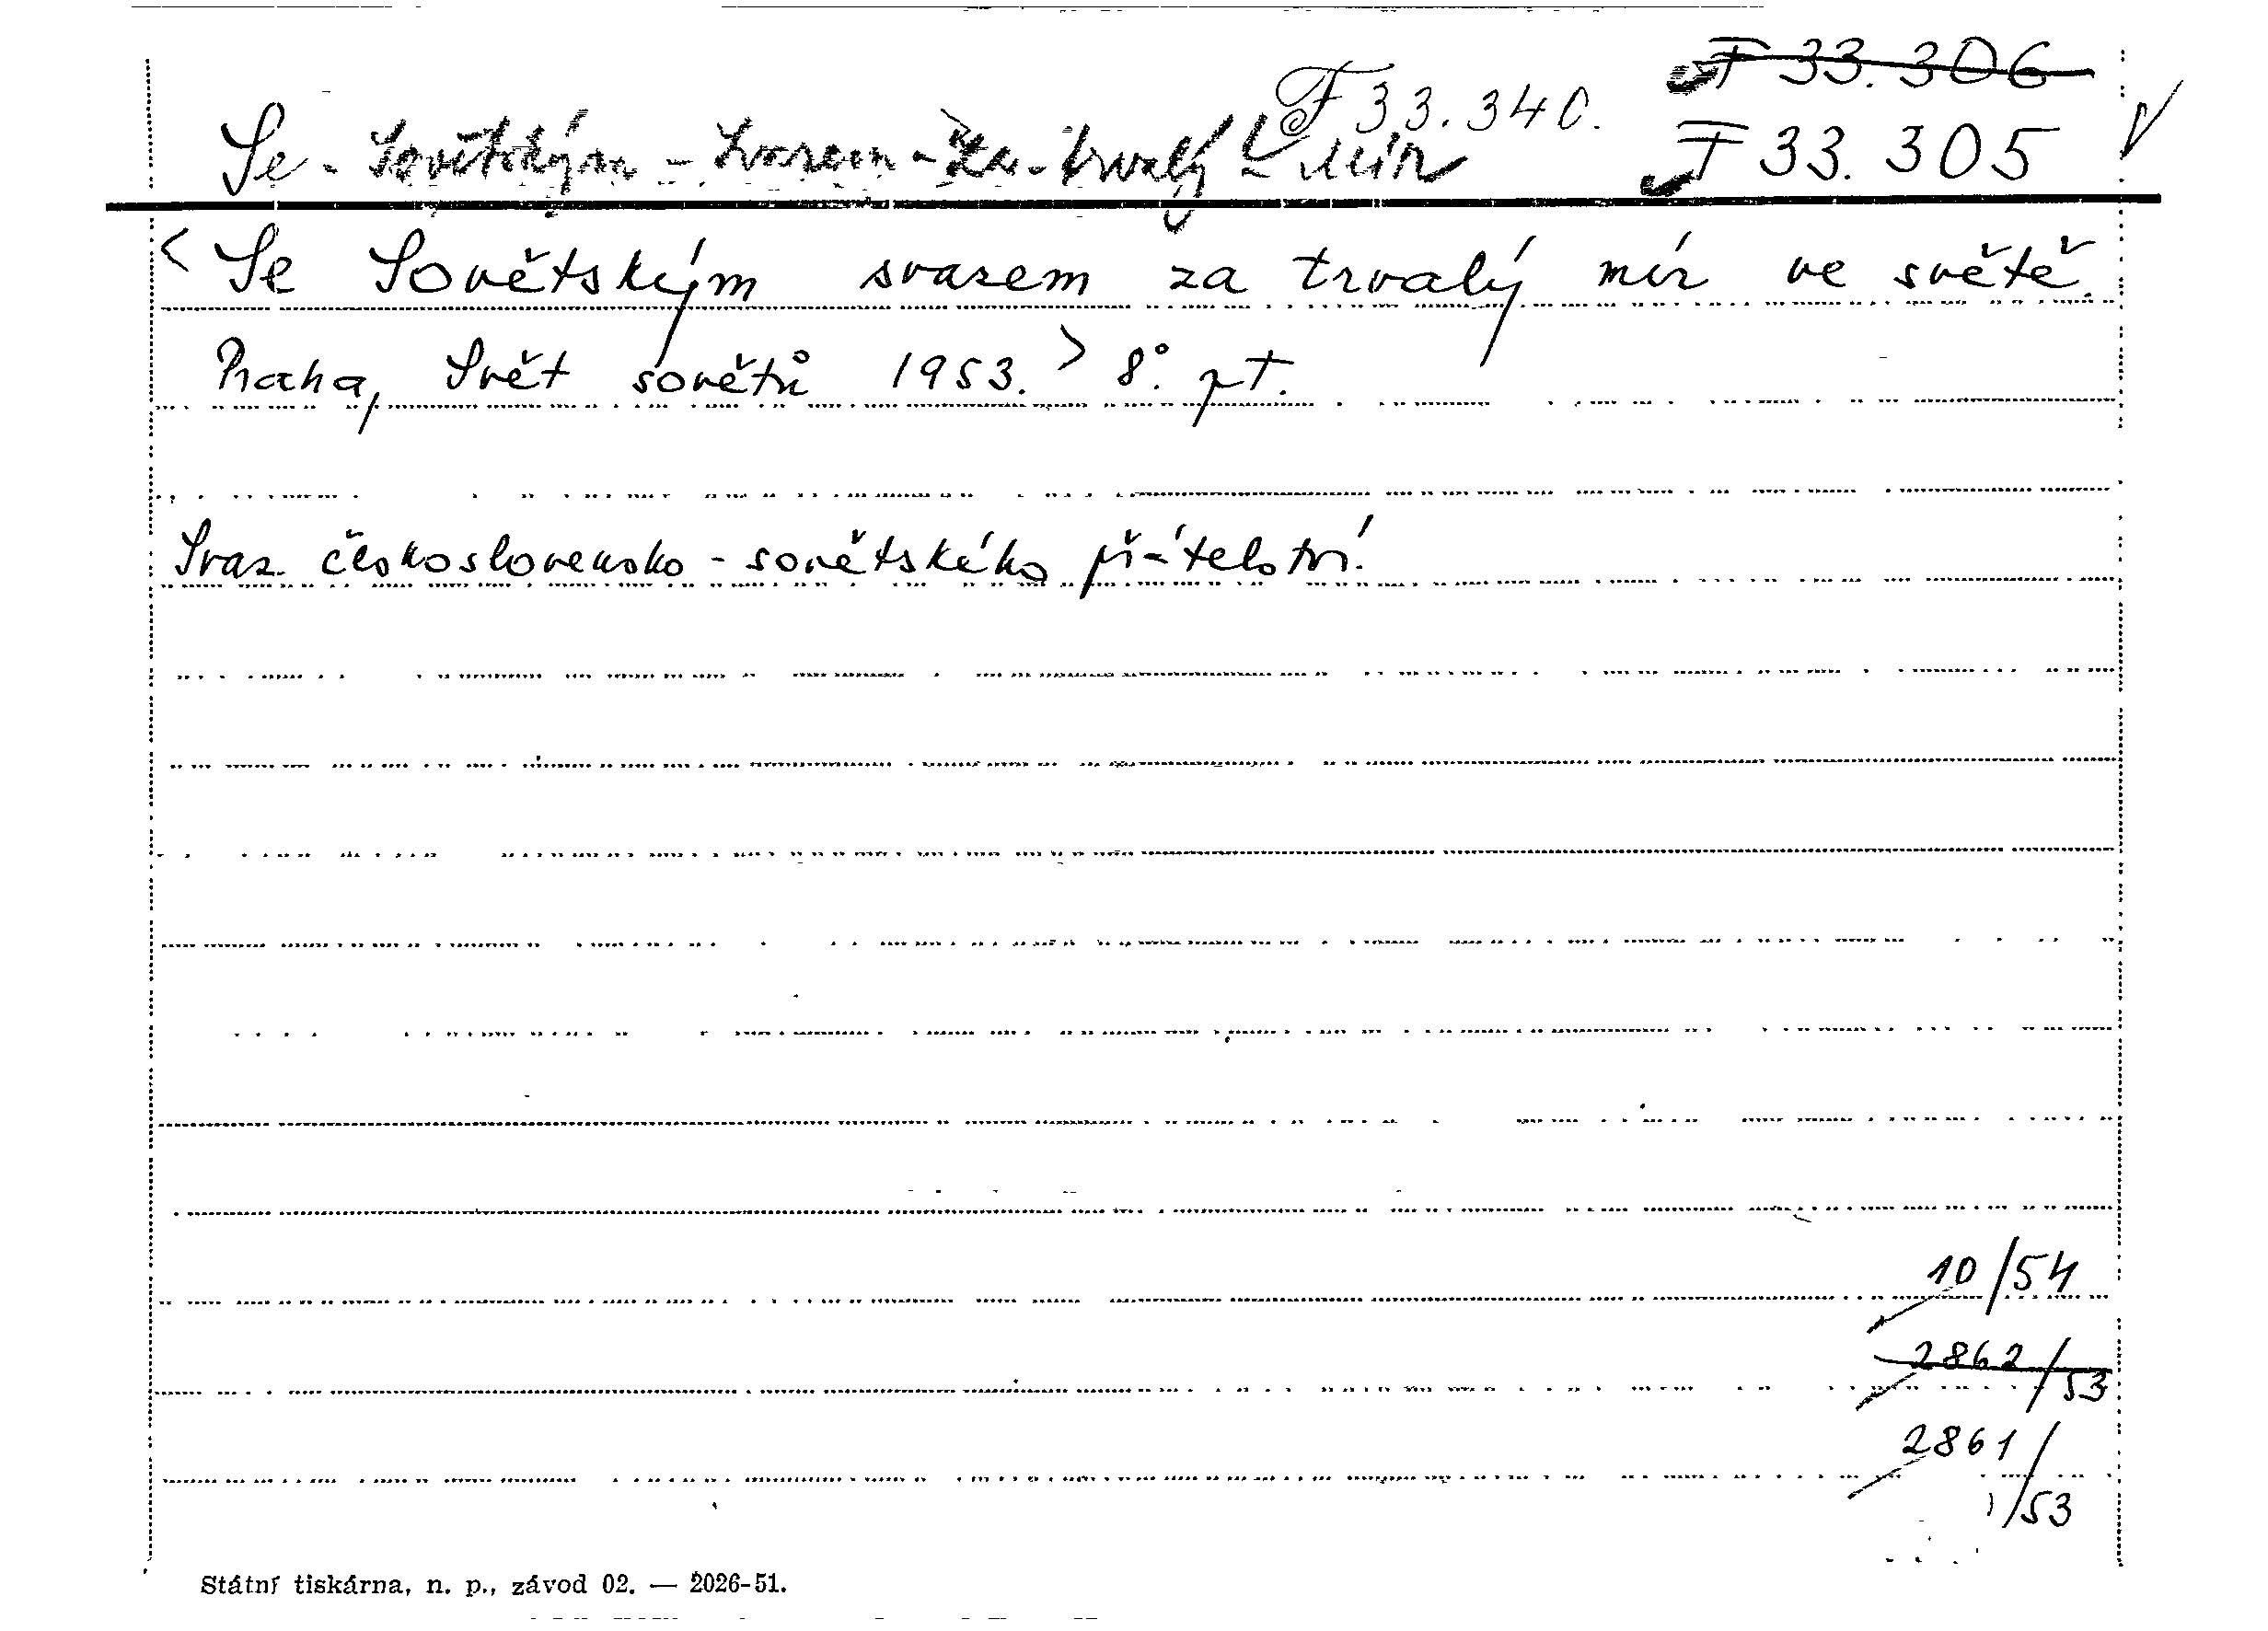 F 33.306
F 33.340.
Se - Sovětským - Svazem - Za - trvalý - mír
F 33.305
< Se Sovětským svazem za trvalý mír ve světě.
Praha, Svět sovětů 1953. > 8°. pt.
Svaz československo - sovětského přátelství.
10/54
2862/53
2861/53
Státní tiskárna, n. p., závod 02. — 2026-51.